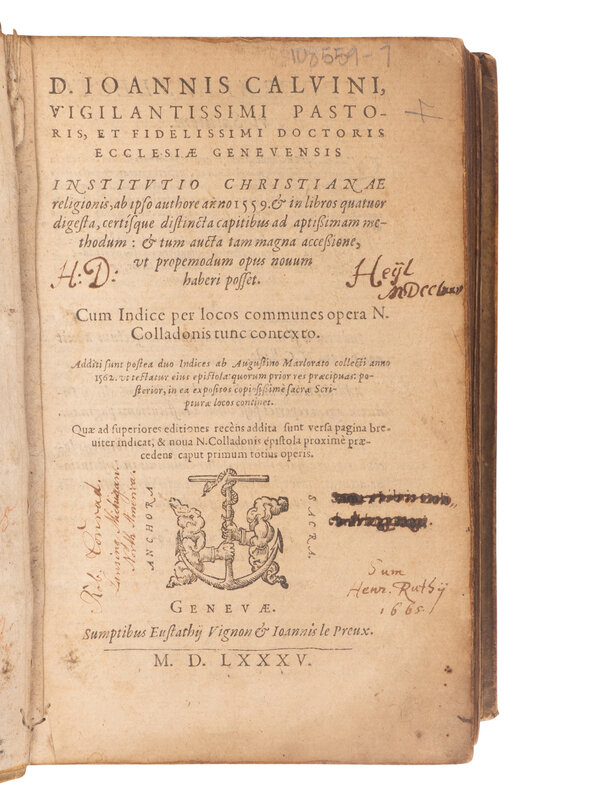 108559-7
D. IOANNIS CALVINI,
VIGILANTISSIMI PASTO-
RIS, ET FIDELISSIMI DOCTORIS
ECCLESIÆ GENEVENSIS
INSTITVTIO CHRISTIANAE
religionis, ab ipso authore anno 1559. & in libros quatuor
digesta, certísque distincta capitibus ad aptißimam me-
thodum: & tum aucta tam magna acceßione,
vt propemodum opus nouum
haberi posset.
H: D:
Heÿl
MDCCLXXV
Cum Indice per locos communes opera N.
Colladonis tunc contexto.
Additi sunt postea duo Indices ab Augustino Marlorato collecti anno
1562. vt testatur eius epistola: quorum prior res præcipuas: po-
sterior, in ea expositos copiosißimè sacræ Scri-
pturæ locos continet.
Quæ ad superiores editiones recèns addita sunt versa pagina bre-
uiter indicat, & noua N. Colladonis epistola proximè præ-
cedens caput primum totius operis.
Rob. Conrad.
Lansing, Michigan.
North America.
ANCHORA
SACRA.
Sum
Henr. Ruthij
1665
GENEVÆ.
Sumptibus Eustathij Vignon & Ioannis le Preux.
M. D. LXXXV.